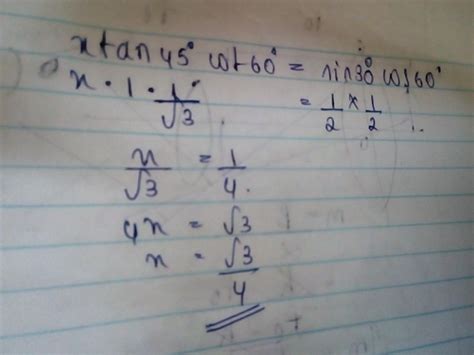 x tan 45° cot 60° = sin 30° cos 60°
x · 1 · 1/√3 = 1/2 × 1/2
x/√3 = 1/4
4x = √3
x = √3/4